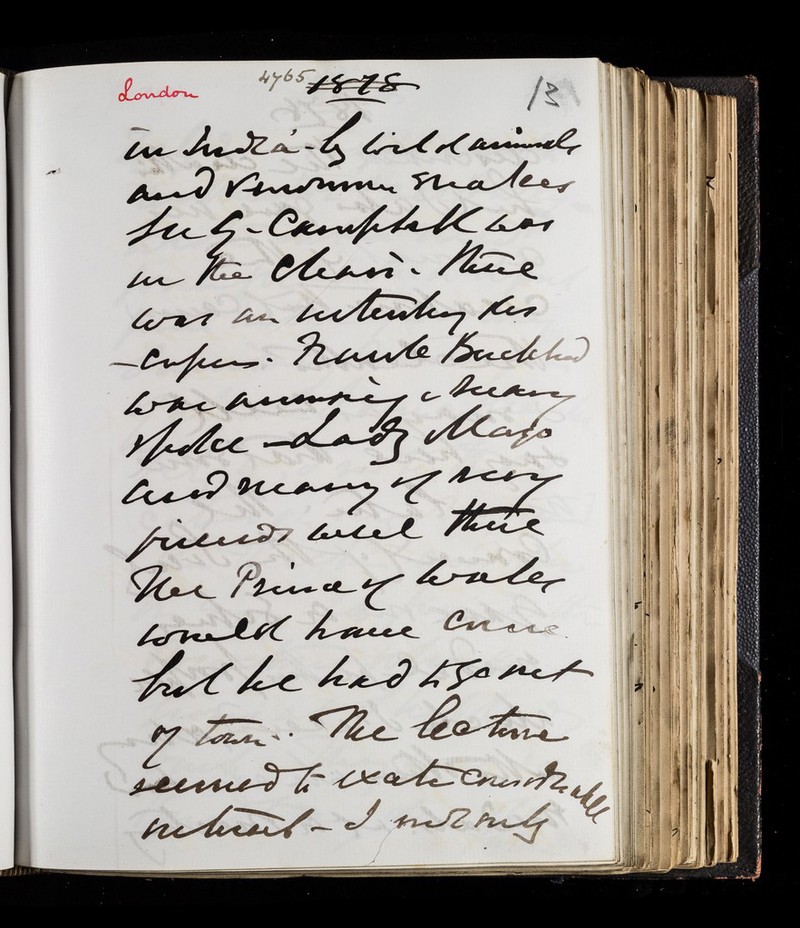 London 4765 1878 13
in India - by wild animals
and venomous snakes
Sir G - Campbell was
in the Chair - there
was an interesting dis
-cussion. Frank Buckland
was amusing & many
spoke - Lady Mayo
and many of my
friends were there
The Prince of Wales
would have come
but he had to go out
of town.. The lecture
seemed to excite considerable
interest - I only